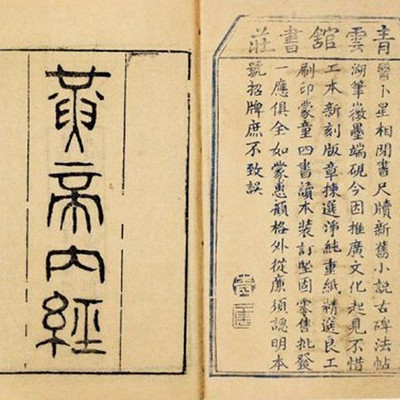 青雲舘書莊
醫卜星相閒書尺牘新舊小說古碑法帖
湖筆徽墨端硯今因推廣文化起見不惜
工本新刻版章揀選淨純重紙精選良工
刷印蒙童四書讀本裝訂堅固零售批發
一應俱全如蒙惠顧格外從廉須認明本
號招牌庶不致誤
黃帝內經